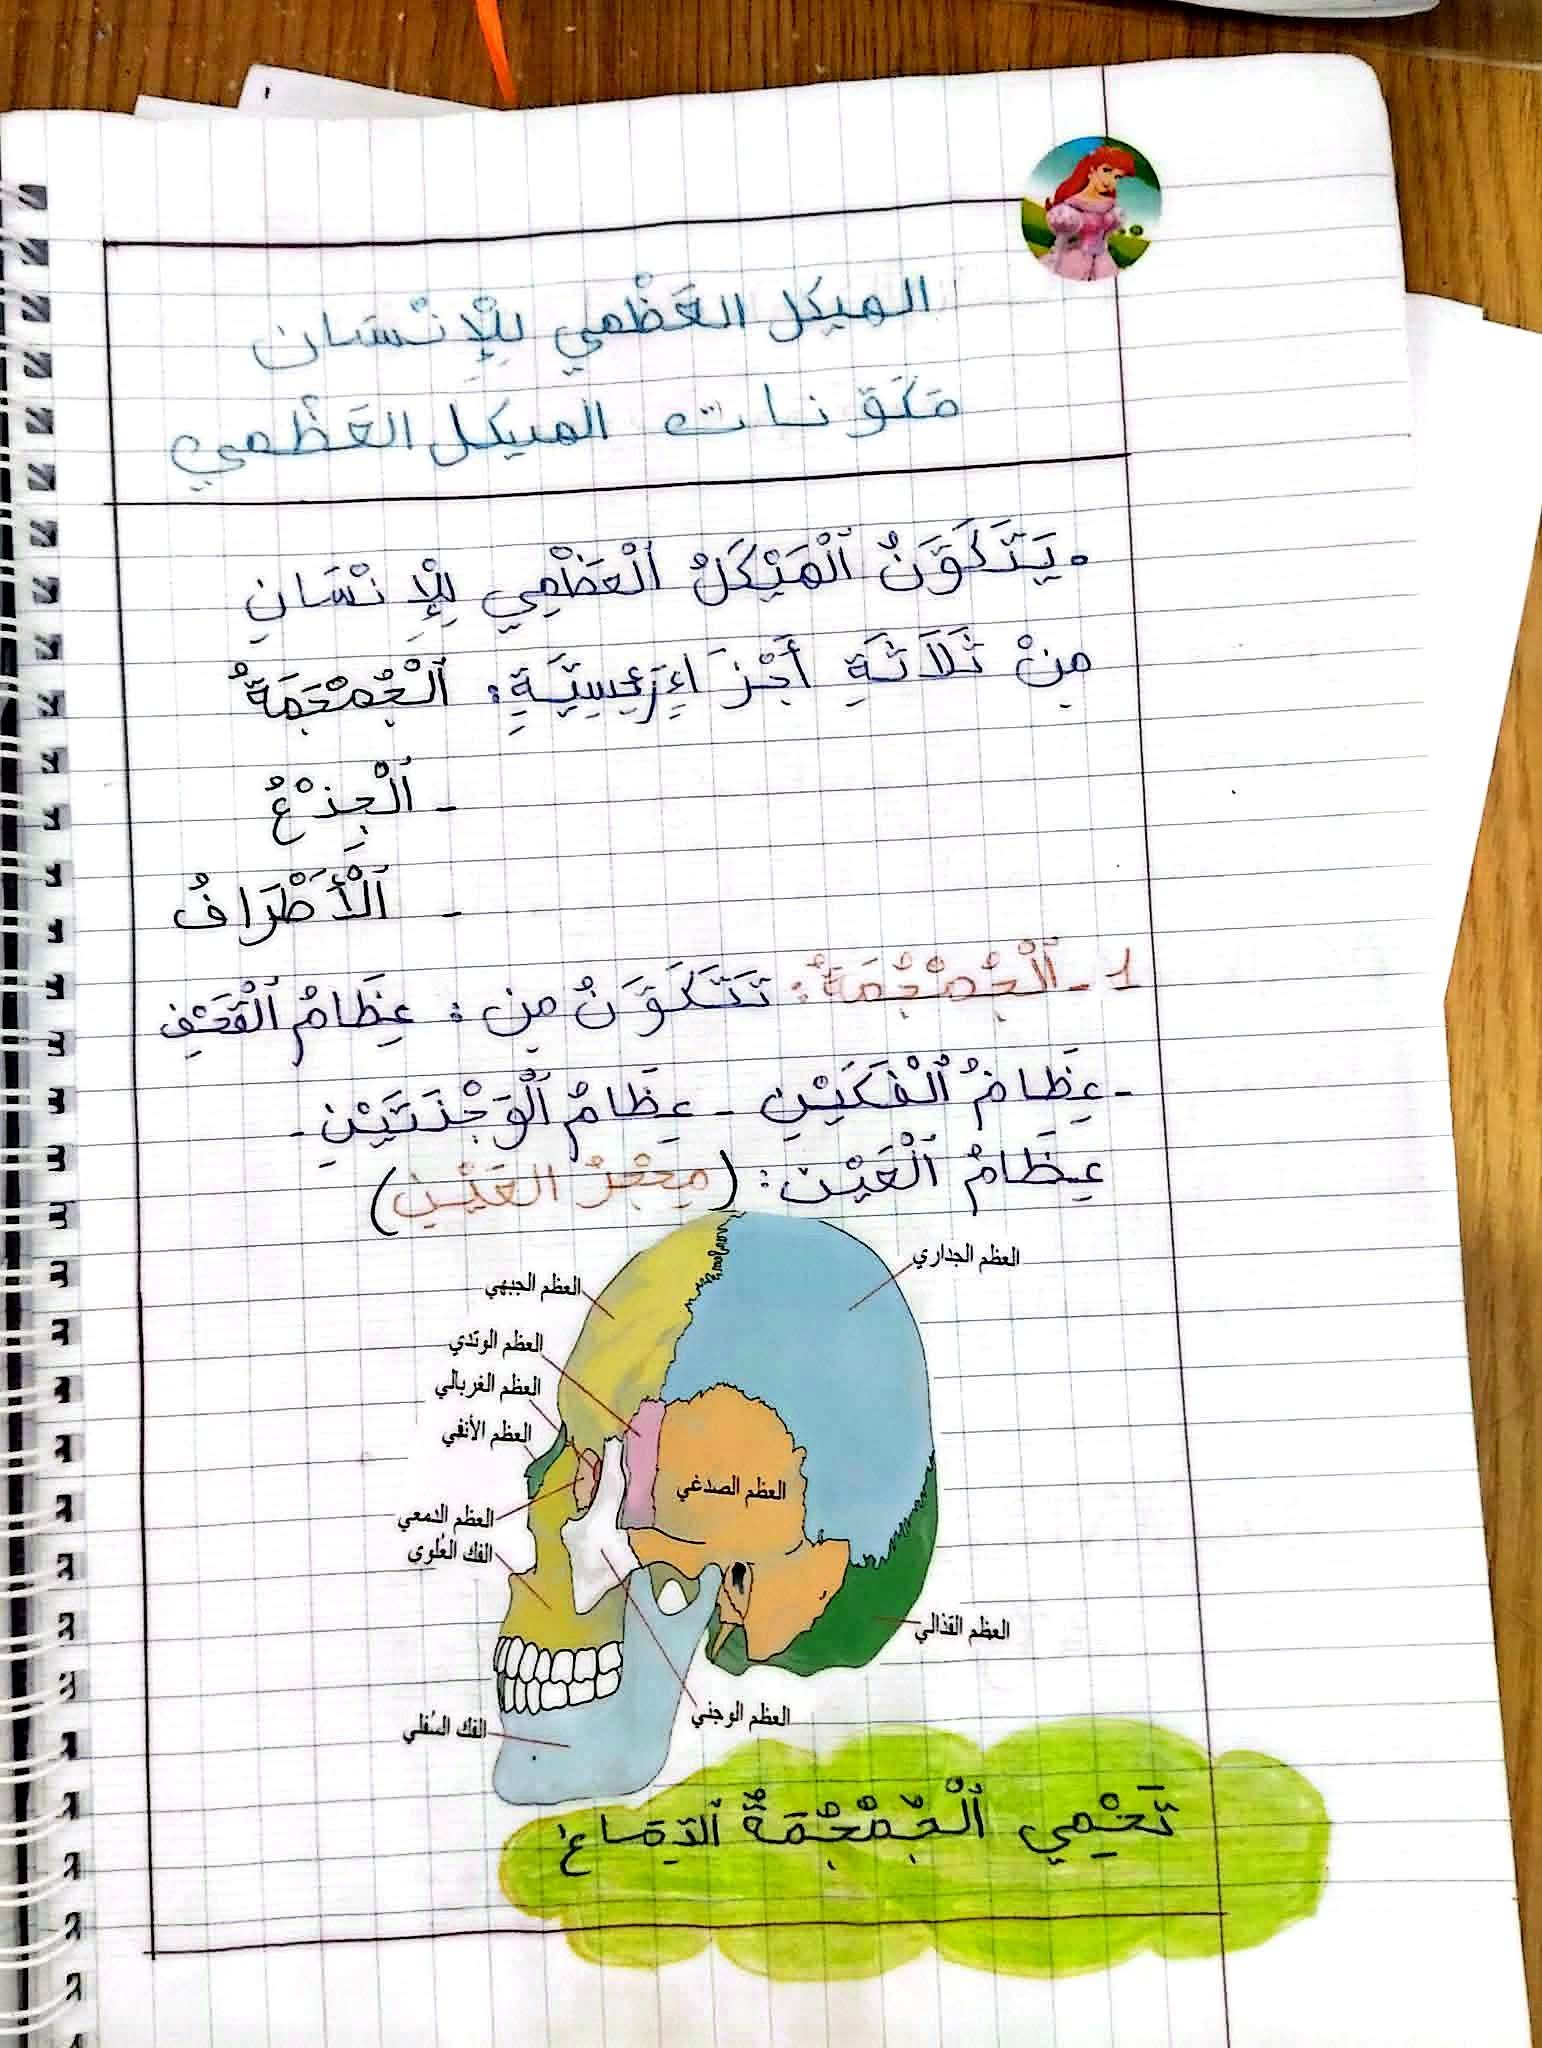 الهيكل العَظْمي لِلْإِنْسَان
مَكَوِّنات الهيكل العَظْمِي
• يَتَكَوَّنُ ٱلْهَيْكَلُ ٱلْعَظْمِي لِلْإِنْسَانِ
مِنْ ثَلَاثَةِ أَجْزَاءٍ رَئِيسِيَّةٍ: ٱلْجُمْجُمَةُ
- ٱلْجِذْعُ
- ٱلْأَطْرَافُ
1- ٱلْجُمْجُمَةُ: تَتَكَوَّنُ مِن: عِظَامُ ٱلْقَحْفِ
- عِظَامُ ٱلْفَكَيْنِ - عِظَامُ ٱلْوَجْنَتَيْنِ -
عِظَامُ ٱلْعَيْن: (مِحْجَرُ العَيْنِ)
العظم الجداري
العظم الجبهي
العظم الوتدي
العظم الغربالي
العظم الأنفي
العظم الصدغي
العظم الدمعي
الفك العُلوي
العظم القذالي
العظم الوجني
الفك السُفلي
تَحْمِي ٱلْجُمْجُمَةُ ٱلدِّمَاغ